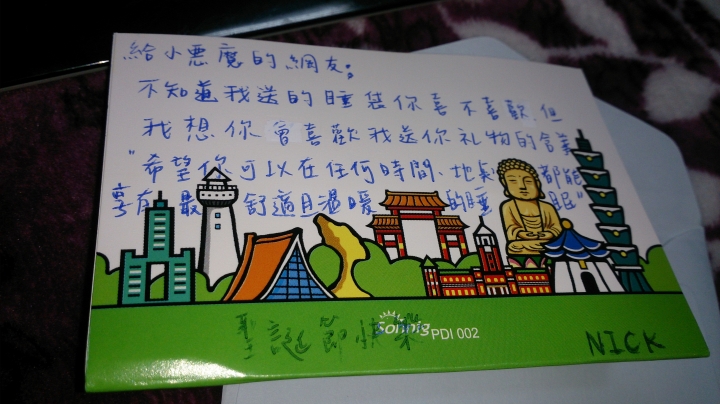 給小惡魔的網友:
不知道我送的睡袋你喜不喜歡,但
我想你會喜歡我送你礼物的含義
"希望你可以在任何時間、地點 都能
享有 最 舒適且溫暖 的睡眠"
Sonnig PDI 002
聖誕節快樂
NICK